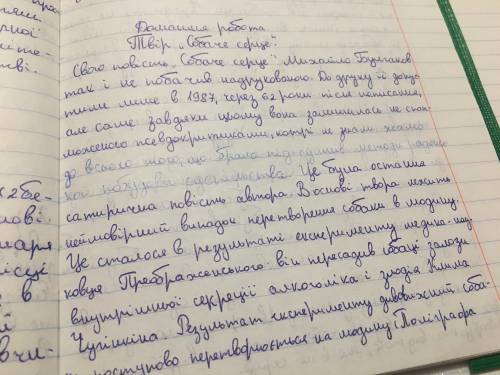 Домашня робота
Твір „Собаче серце".
Свою повість „Собаче серце" Михайло Булгаков
так і не побачив надрукованою. До друку її допус-
тили лише в 1987, через 62 роки після написання,
але саме завдяки цьому вона залишилась не спап-
люженою псевдокритиками, котрі не знали жалю
до всього того, що брало під сумнів методи радянсь-
кої побудови суспільства. Це була остання
сатирична повість автора. В основі твора лежить
неймовірний випадок перетворення собаки в людину.
Це сталося в результаті експерименту медика-нау-
ковця Преображенського. Він пересадив собаці залози
внутрішньої секреції алкоголіка і злодія Клима
Чугункіна. Результат експерименту дивовижний соба-
поступово перетворюється на людину Поліграфа
ної
іте-
тві.
х 2 бе-
лові.
маря
місці
в
вчи-